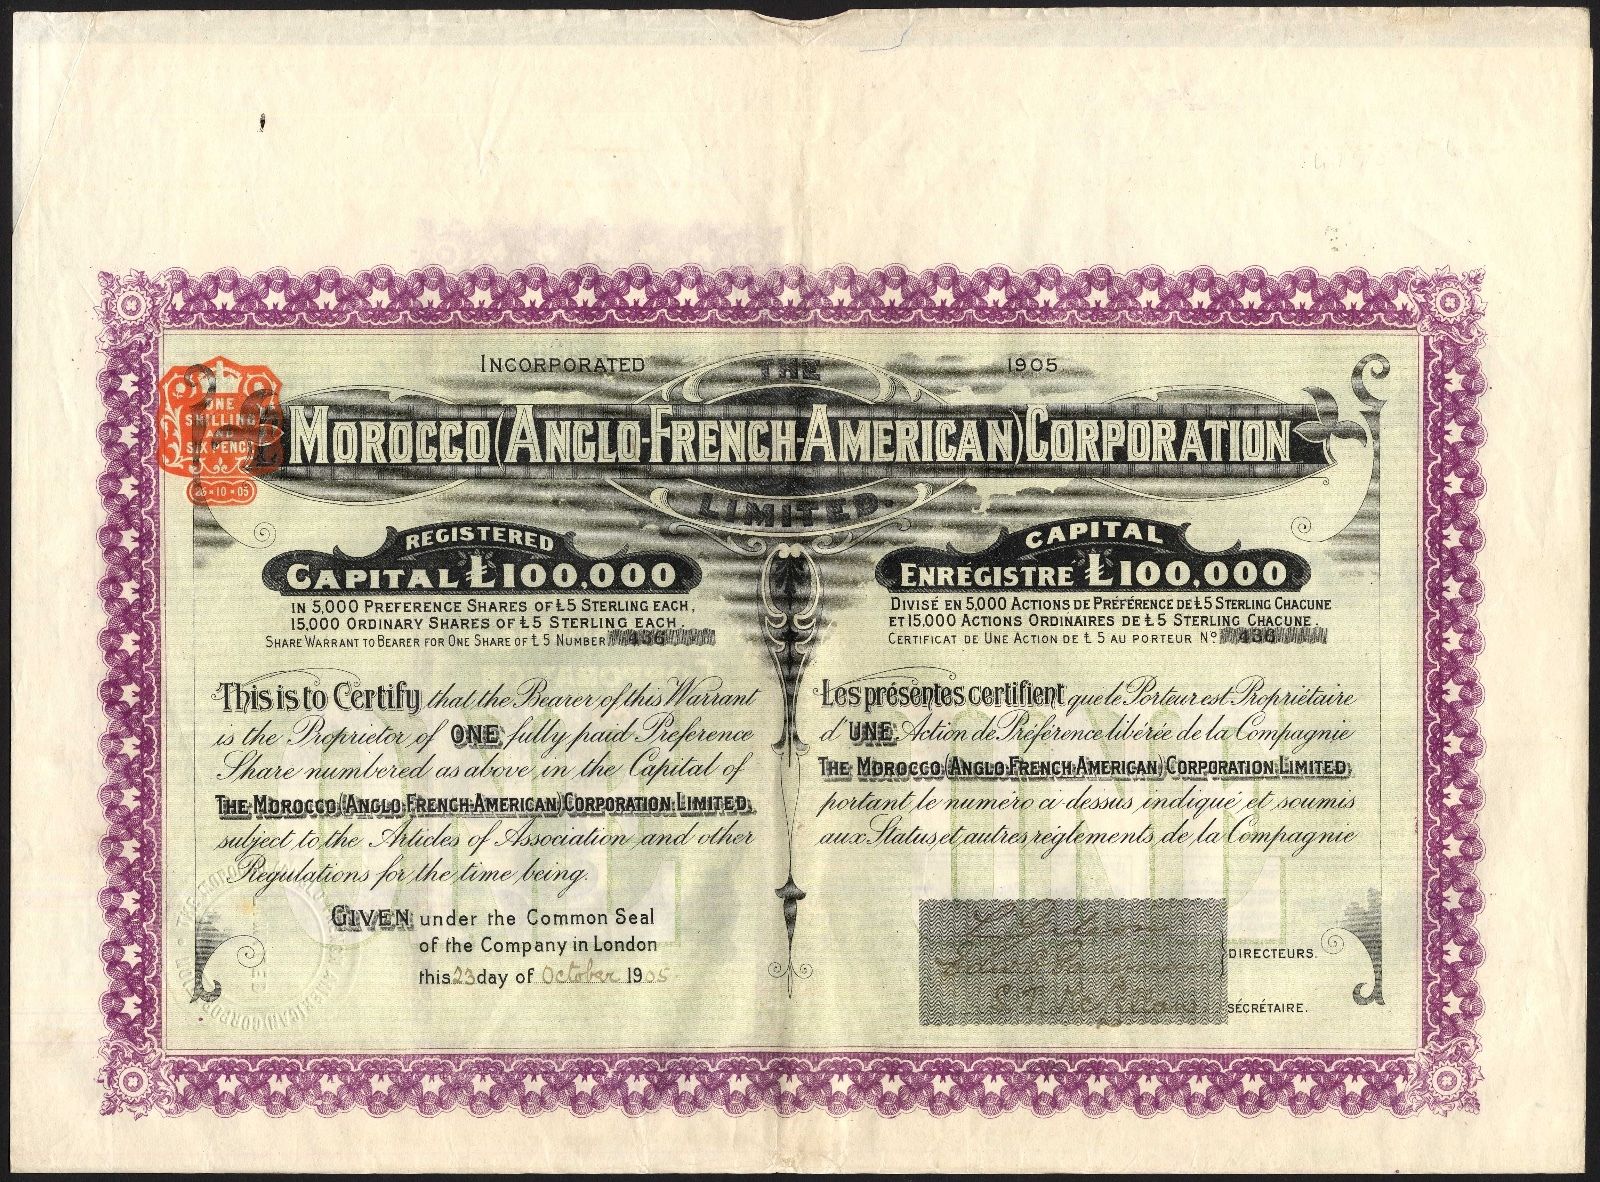 INCORPORATED 1905
THE
MOROCCO (ANGLO-FRENCH-AMERICAN) CORPORATION
LIMITED.
ONE
SHILLING
AND
SIX PENCE
23·10·05
REGISTERED
CAPITAL £100,000
IN 5,000 PREFERENCE SHARES OF £5 STERLING EACH,
15,000 ORDINARY SHARES OF £5 STERLING EACH.
SHARE WARRANT TO BEARER FOR ONE SHARE OF £5 NUMBER 436
This is to Certify that the Bearer of this Warrant
is the Proprietor of ONE fully paid Preference
Share numbered as above in the Capital of
THE MOROCCO (ANGLO-FRENCH-AMERICAN) CORPORATION LIMITED,
subject to the Articles of Association and other
Regulations for the time being.
GIVEN under the Common Seal
of the Company in London
this 23 day of October 1905
CAPITAL
ENREGISTRE £100,000
DIVISÉ EN 5,000 ACTIONS DE PRÉFÉRENCE DE £5 STERLING CHACUNE
ET 15,000 ACTIONS ORDINAIRES DE £5 STERLING CHACUNE.
CERTIFICAT DE UNE ACTION DE £5 AU PORTEUR No 436
Les présentes certifient que le Porteur est Propriétaire
d'UNE Action de Préférence libérée de la Compagnie
THE MOROCCO (ANGLO-FRENCH-AMERICAN) CORPORATION LIMITED,
portant le numéro ci-dessus indiqué et soumis
aux Status, et autres réglements de la Compagnie
ONE
UNE
DIRECTEURS.
SÉCRÉTAIRE.